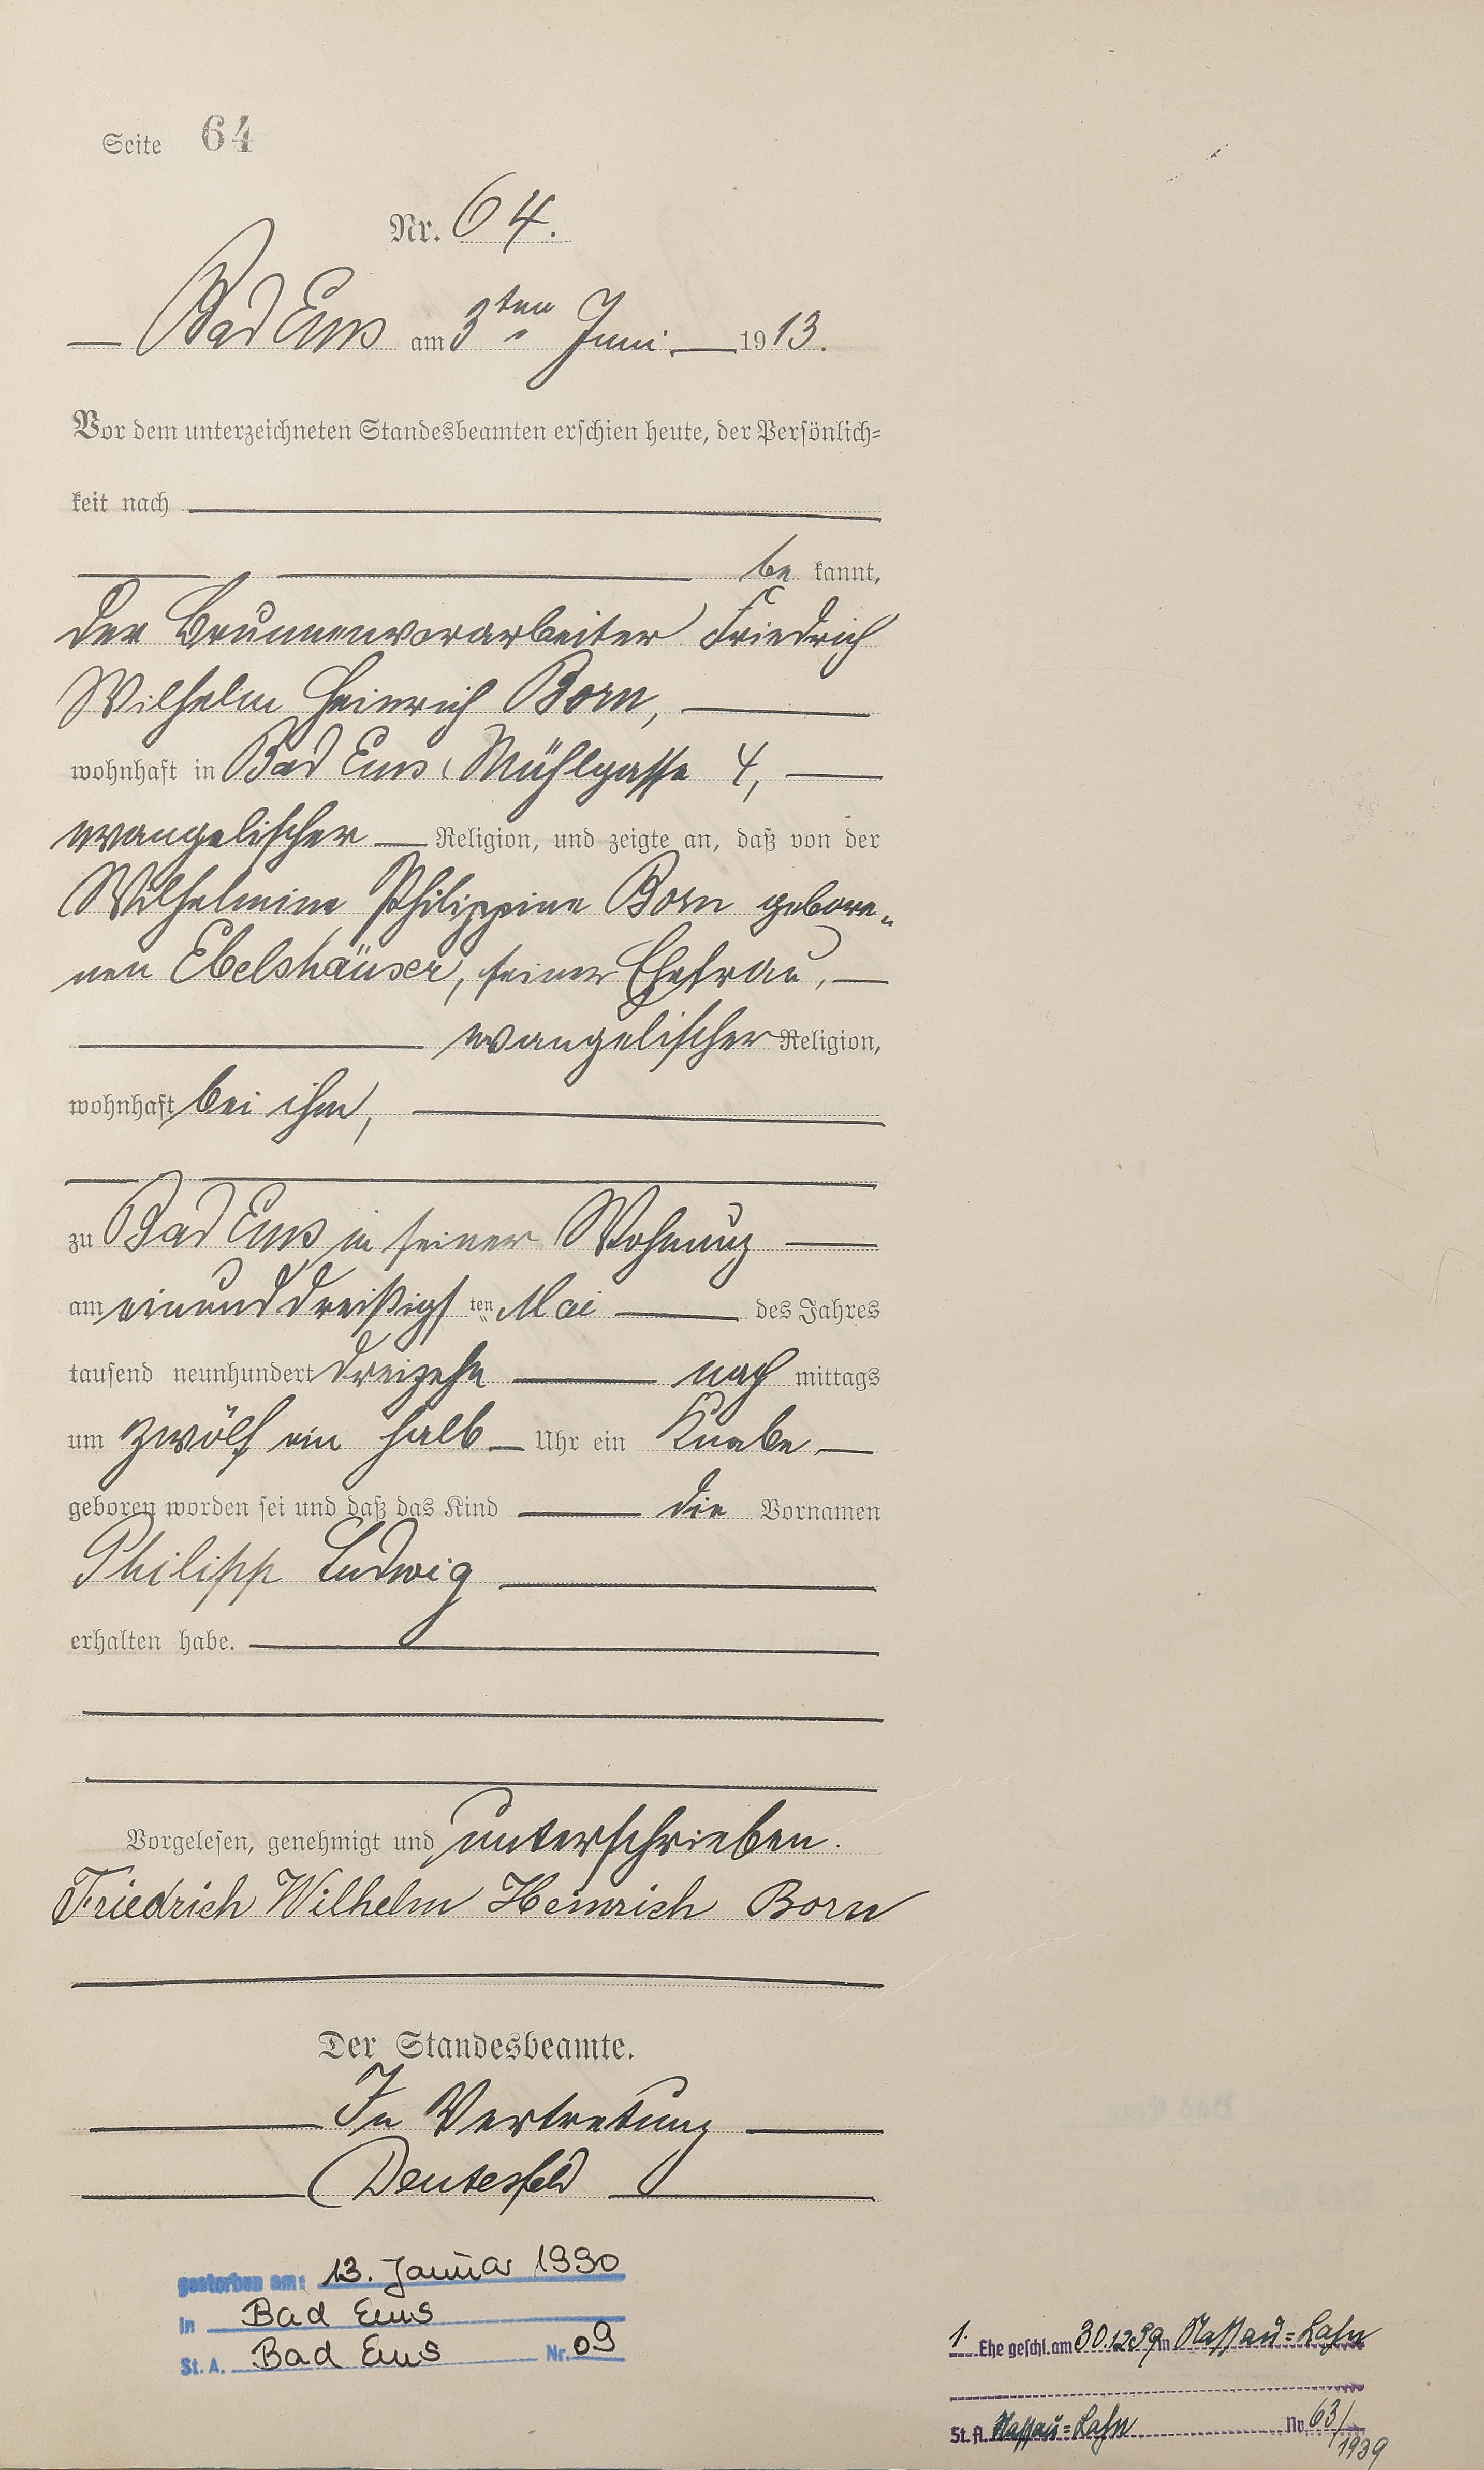 Seite 64
Nr. 64.
Bad Ems am 3ten Juni 1913.
Vor dem unterzeichneten Standesbeamten erschien heute, der Persönlich=
keit nach
be kannt,
der Brunnenvorarbeiter Friedrich
Wilhelm Heinrich Born,
wohnhaft in Bad Ems, Mühlgasse 4,
evangelischer Religion, und zeigte an, daß von der
Wilhelmine Philippine Born gebore„
nen Ebelshäuser, seiner Ehefrau,
evangelischer Religion,
wohnhaft bei ihm,
zu Bad Ems in seiner Wohnung
am einunddreißigs ten Mai des Jahres
tausend neunhundert dreizehn nach mittags
um zwölf ein halb Uhr ein Knabe
geboren worden sei und daß das Kind die Vornamen
Philipp Ludwig
erhalten habe.
Vorgelesen, genehmigt und unterschrieben.
Friedrich Wilhelm Heinrich Born
Der Standesbeamte.
In Vertretung
Deutesfeld
gestorben am: 13. Januar 1990
in Bad Ems
St. A. Bad Ems Nr. 09
1. Ehe geschl. am 30.12.39 in Nassau=Lahn
St. A. Nassau=Lahn Nr. 63/
1939